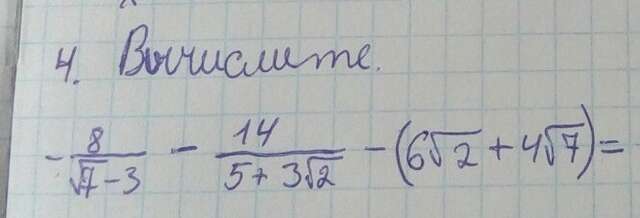 4. Вычислите.
- 8/(√7-3) - 14/(5+3√2) - (6√2+4√7)=